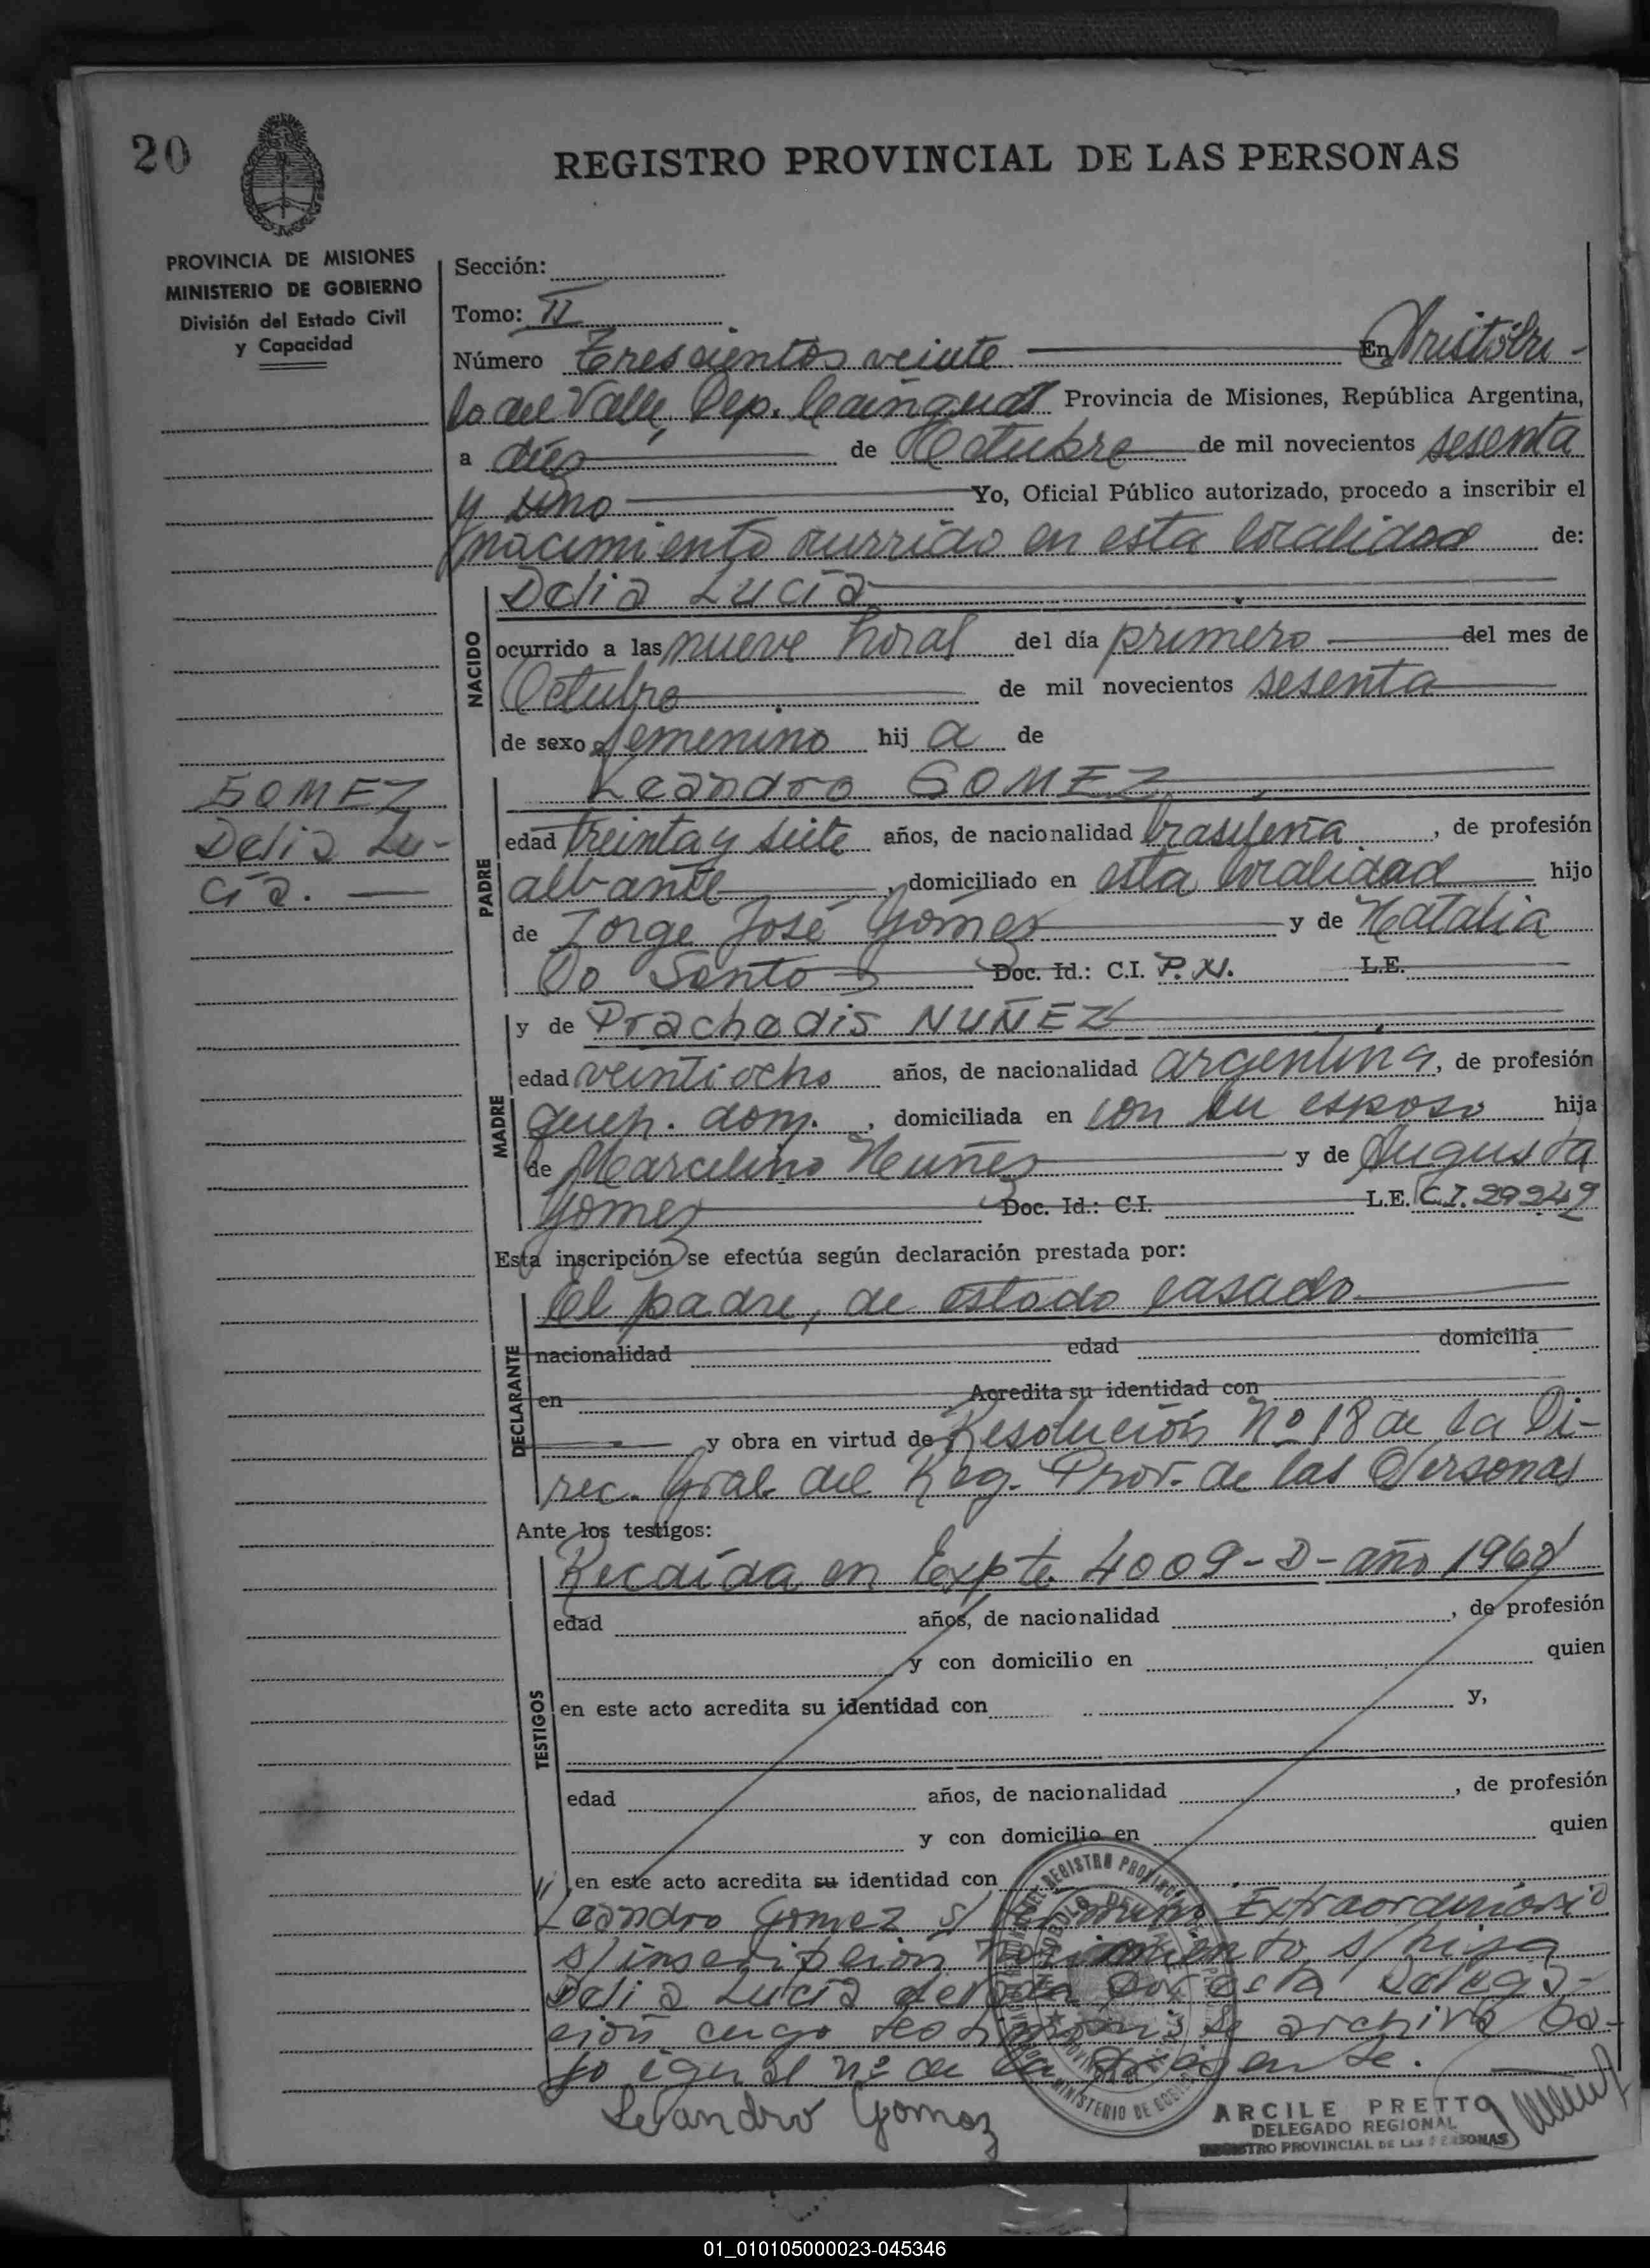 20
REGISTRO PROVINCIAL DE LAS PERSONAS
PROVINCIA DE MISIONES
MINISTERIO DE GOBIERNO
División del Estado Civil
y Capacidad
Sección:
Tomo: II
Número Trescientos veinte En Aristóbu-
lo del Valle, Dep. Cainguas Provincia de Misiones, República Argentina,
a diez de Octubre de mil novecientos sesenta
y uno Yo, Oficial Público autorizado, procedo a inscribir el
nacimiento ocurrido en esta localidad de:
NACIDO
Delia Lucía
ocurrido a las nueve horas del día primero del mes de
Octubre de mil novecientos sesenta
de sexo femenino hij a de
GOMEZ
Delia Lu-
cía.
PADRE
Leandro GOMEZ
edad treinta y siete años, de nacionalidad brasileña, de profesión
albañil, domiciliado en esta localidad hijo
de Jorge José Gómez y de Natalia
Do Santo Doc. Id.: C.I. P. N. L.E.
MADRE
y de Prachedis NUÑEZ
edad veintiocho años, de nacionalidad argentina, de profesión
queh. dom., domiciliada en con su esposo hija
de Marcelino Nuñez y de Augusta
Gomez Doc. Id.: C.I. L.E. C.I. 29249
Esta inscripción se efectúa según declaración prestada por:
DECLARANTE
El padre, de estado casado
nacionalidad edad domicilia
en Acredita su identidad con
y obra en virtud de Resolución Nº 18 de la Di-
rec. Gral. del Reg. Prov. de las Personas
Ante los testigos:
TESTIGOS
Recaída en Expte. 4009-D-año 196
edad años, de nacionalidad , de profesión
y con domicilio en quien
en este acto acredita su identidad con y,
edad años, de nacionalidad , de profesión
y con domicilio en quien
en este acto acredita su identidad con
Leandro Gomez s/ Extraordinario
s/inscripción nacimiento s/hija
Delia Lucía por esta Delega-
ción cuyo se archiva ba-
jo igual nº de la presente.
Leandro Gomez
ARCILE PRETTO
DELEGADO REGIONAL
REGISTRO PROVINCIAL DE LAS PERSONAS
01_010105000023-045346